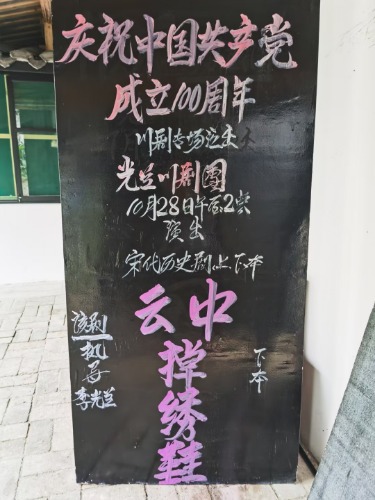 庆祝中国共产党
成立100周年
川剧专场演出
光兰川剧團
10月28日午后2点
演出
宋代历史剧上下本
云中
掉绣鞋
该剧
执导
李光兰
下本